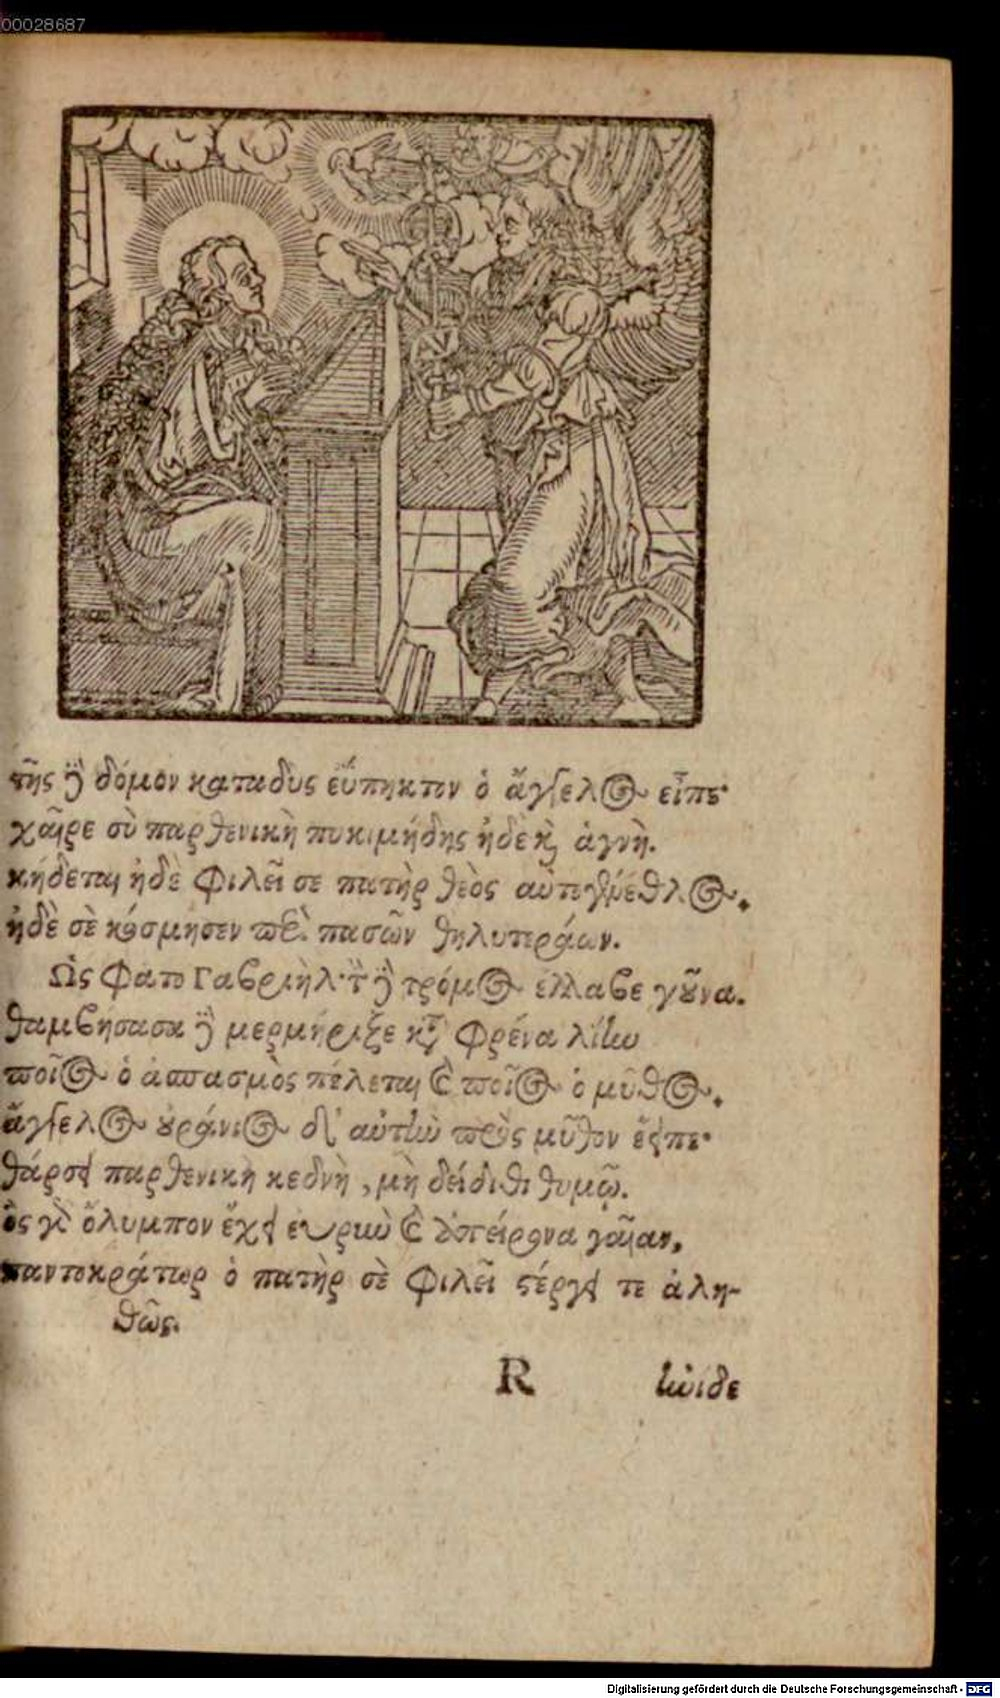 00028687
τῆς δ' δόμον καταδὺς εὔπηκτον ὁ ἄγγελος εἶπε·
χαῖρε σὺ παρθενικὴ πυκιμήδης ἠδὲ καὶ ἁγνὴ.
κήδεται ἠδὲ φιλεῖ σε πατὴρ θεὸς αὐτογένεθλος.
ἠδὲ σὲ κόσμησεν περὶ πασῶν θηλυτεράων.
Ὣς φάτο Γαβριὴλ· τῆς δ' τρόμος ἔλλαβε γοῦνα.
θαμβήσασα δ' μερμήριξε κατὰ φρένα λίην
ποῖος ὁ ἀσπασμὸς πέλεται καὶ ποῖος ὁ μῦθος.
ἄγγελος οὐράνιος δ' αὐτὴν πρὸς μῦθον ἔειπε·
θάρσει παρθενικὴ κεδνὴ, μὴ δείδιθι θυμῷ.
ὃς γὰρ ὄλυμπον ἔχει εὐρὺν καὶ ἀπείρονα γαῖαν,
παντοκράτωρ ὁ πατὴρ σὲ φιλεῖ στέργει τε ἀλη-
θῶς.
R
ἠνίδε
Digitalisierung gefördert durch die Deutsche Forschungsgemeinschaft - DFG